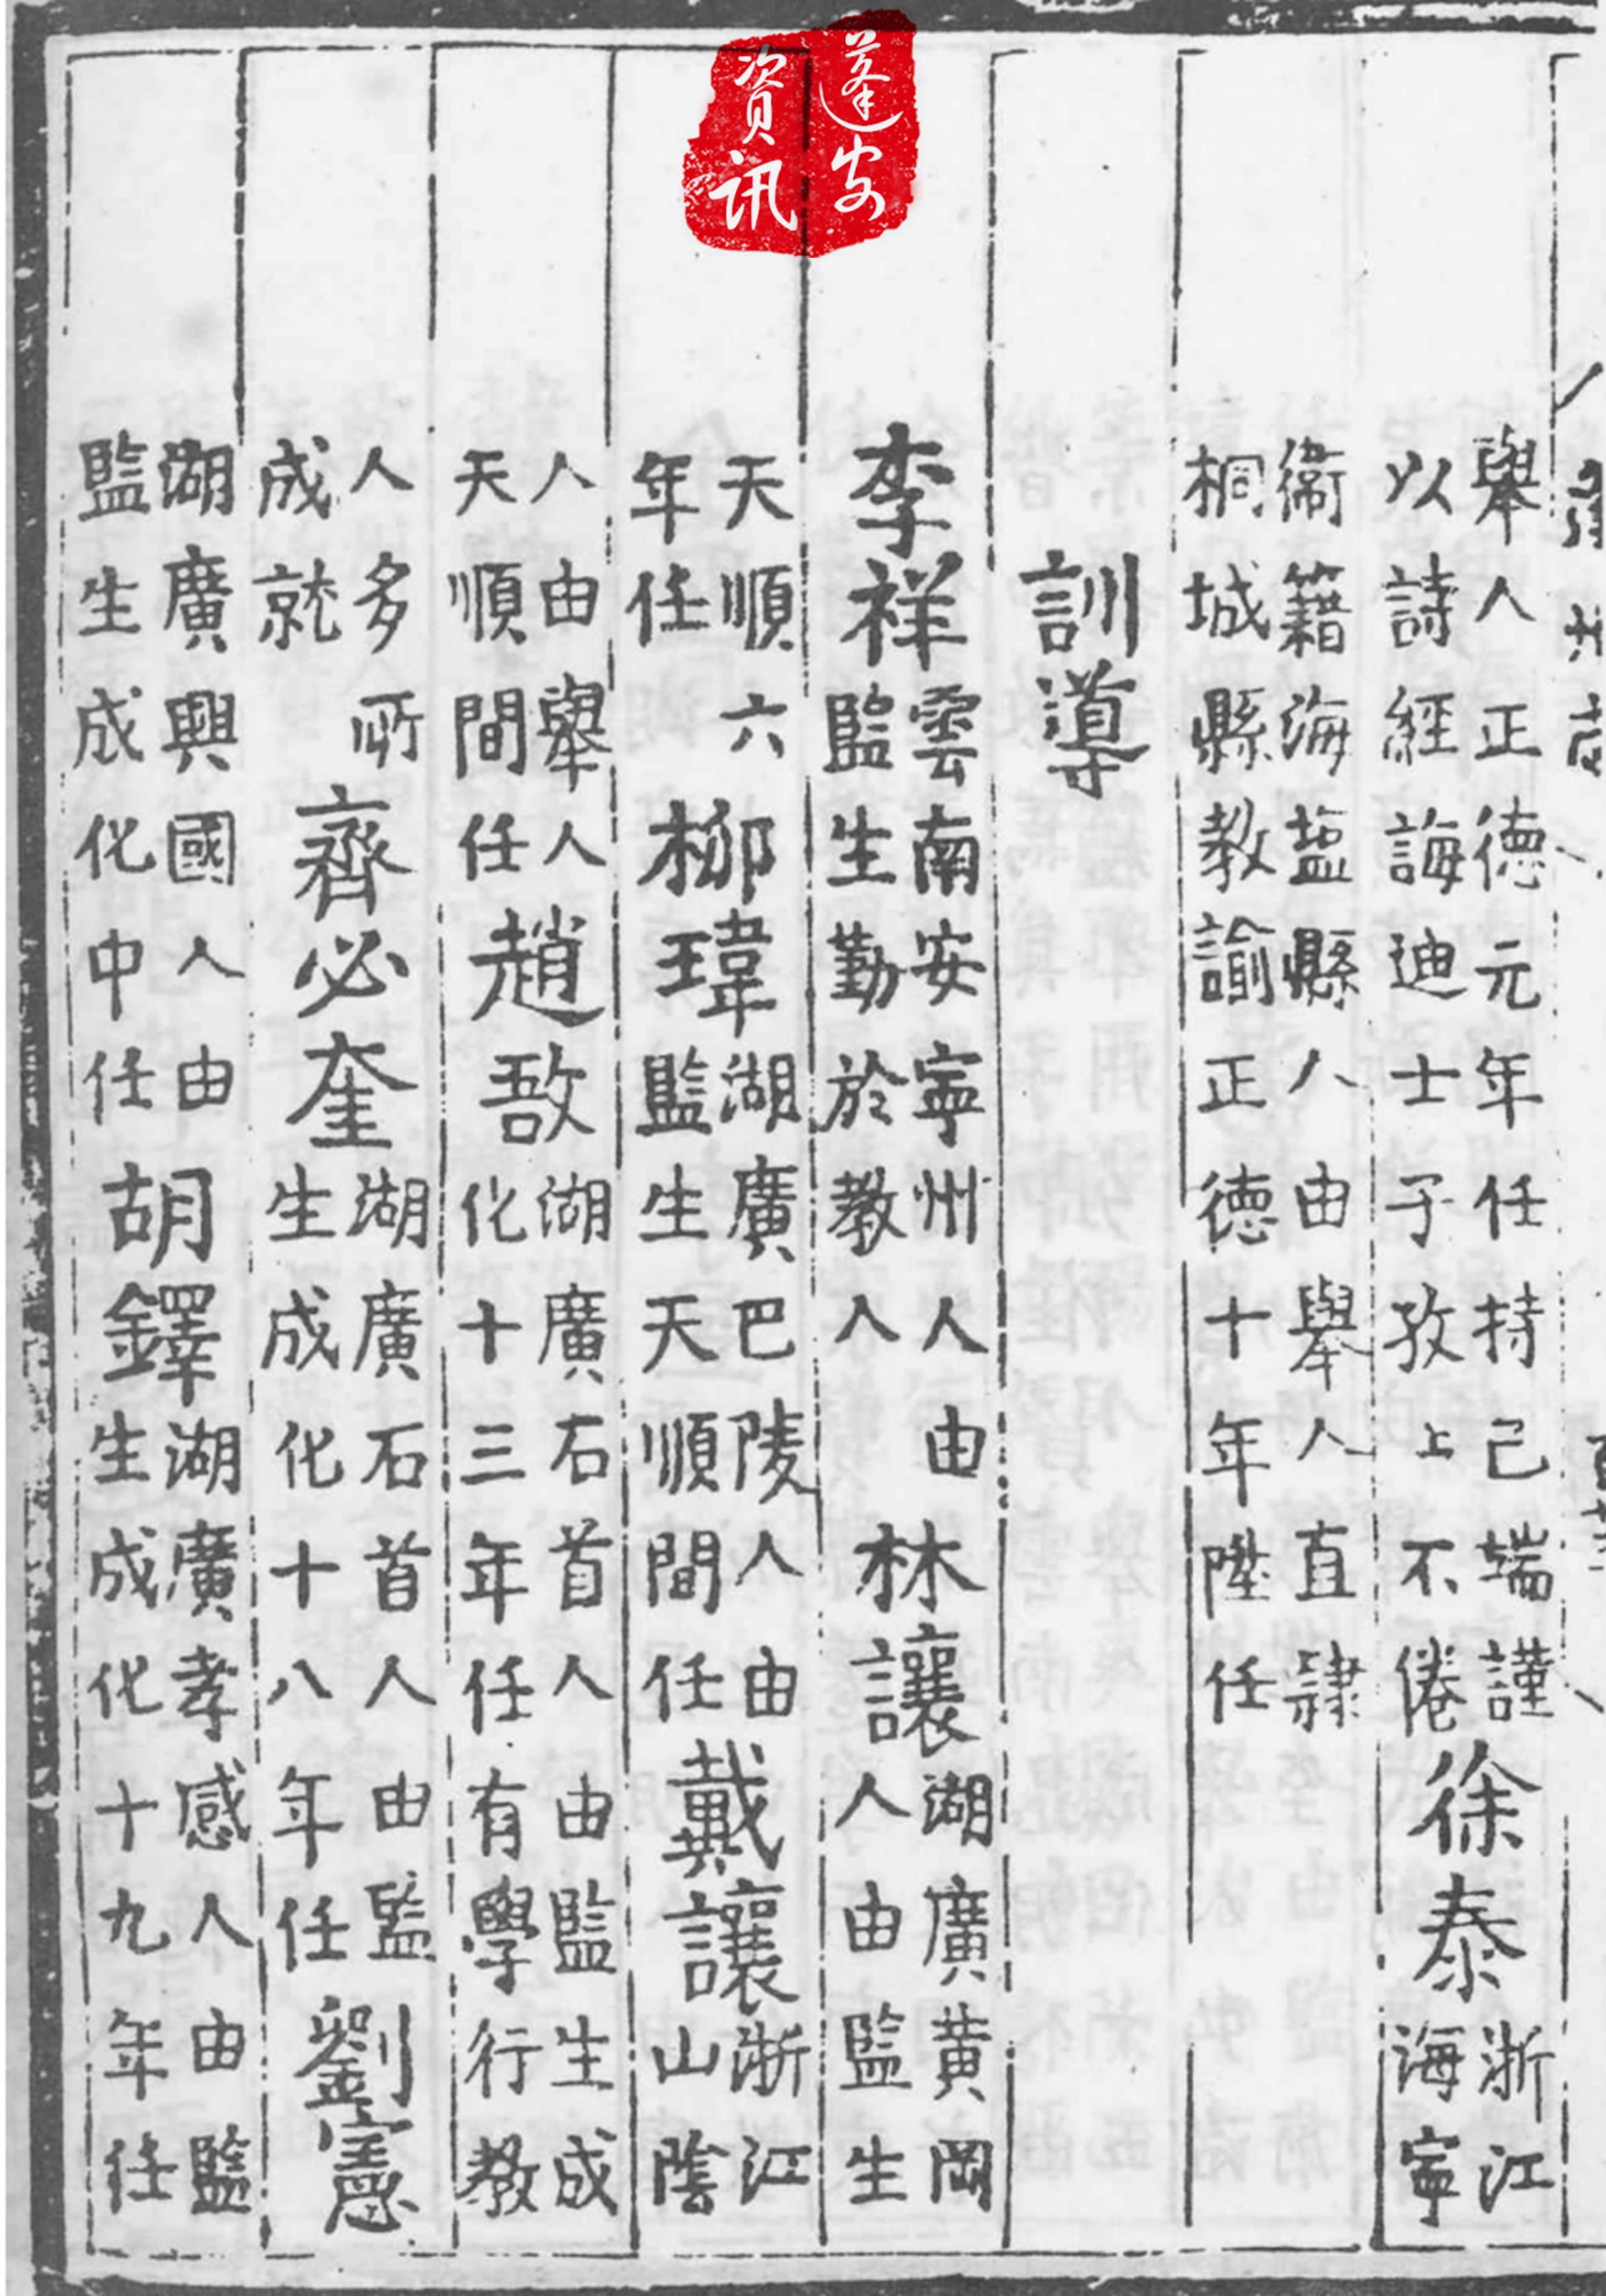 蓬安
资讯
舉人正德元年任持己端謹
以詩經誨迪士子孜上不倦
徐泰
浙江
海寧
衞籍海塩縣人由舉人直隷
桐城縣教諭正德十年陞任
訓導
李祥
雲南安寧州人由
監生勤於教人
林讓
湖廣黃岡
人由監生
天順六
年任
柳瑋
湖廣巴陵人由
監生天順間任
戴讓
浙江
山陰
人由舉人
天順間任
趙敔
湖廣石首人由監生成
化十三年任有學行教
人多所
成就
齊必奎
湖廣石首人由監
生成化十八年任
劉憲
湖廣興國人由
監生成化中任
胡鐸
湖廣孝感人由監
生成化十九年任